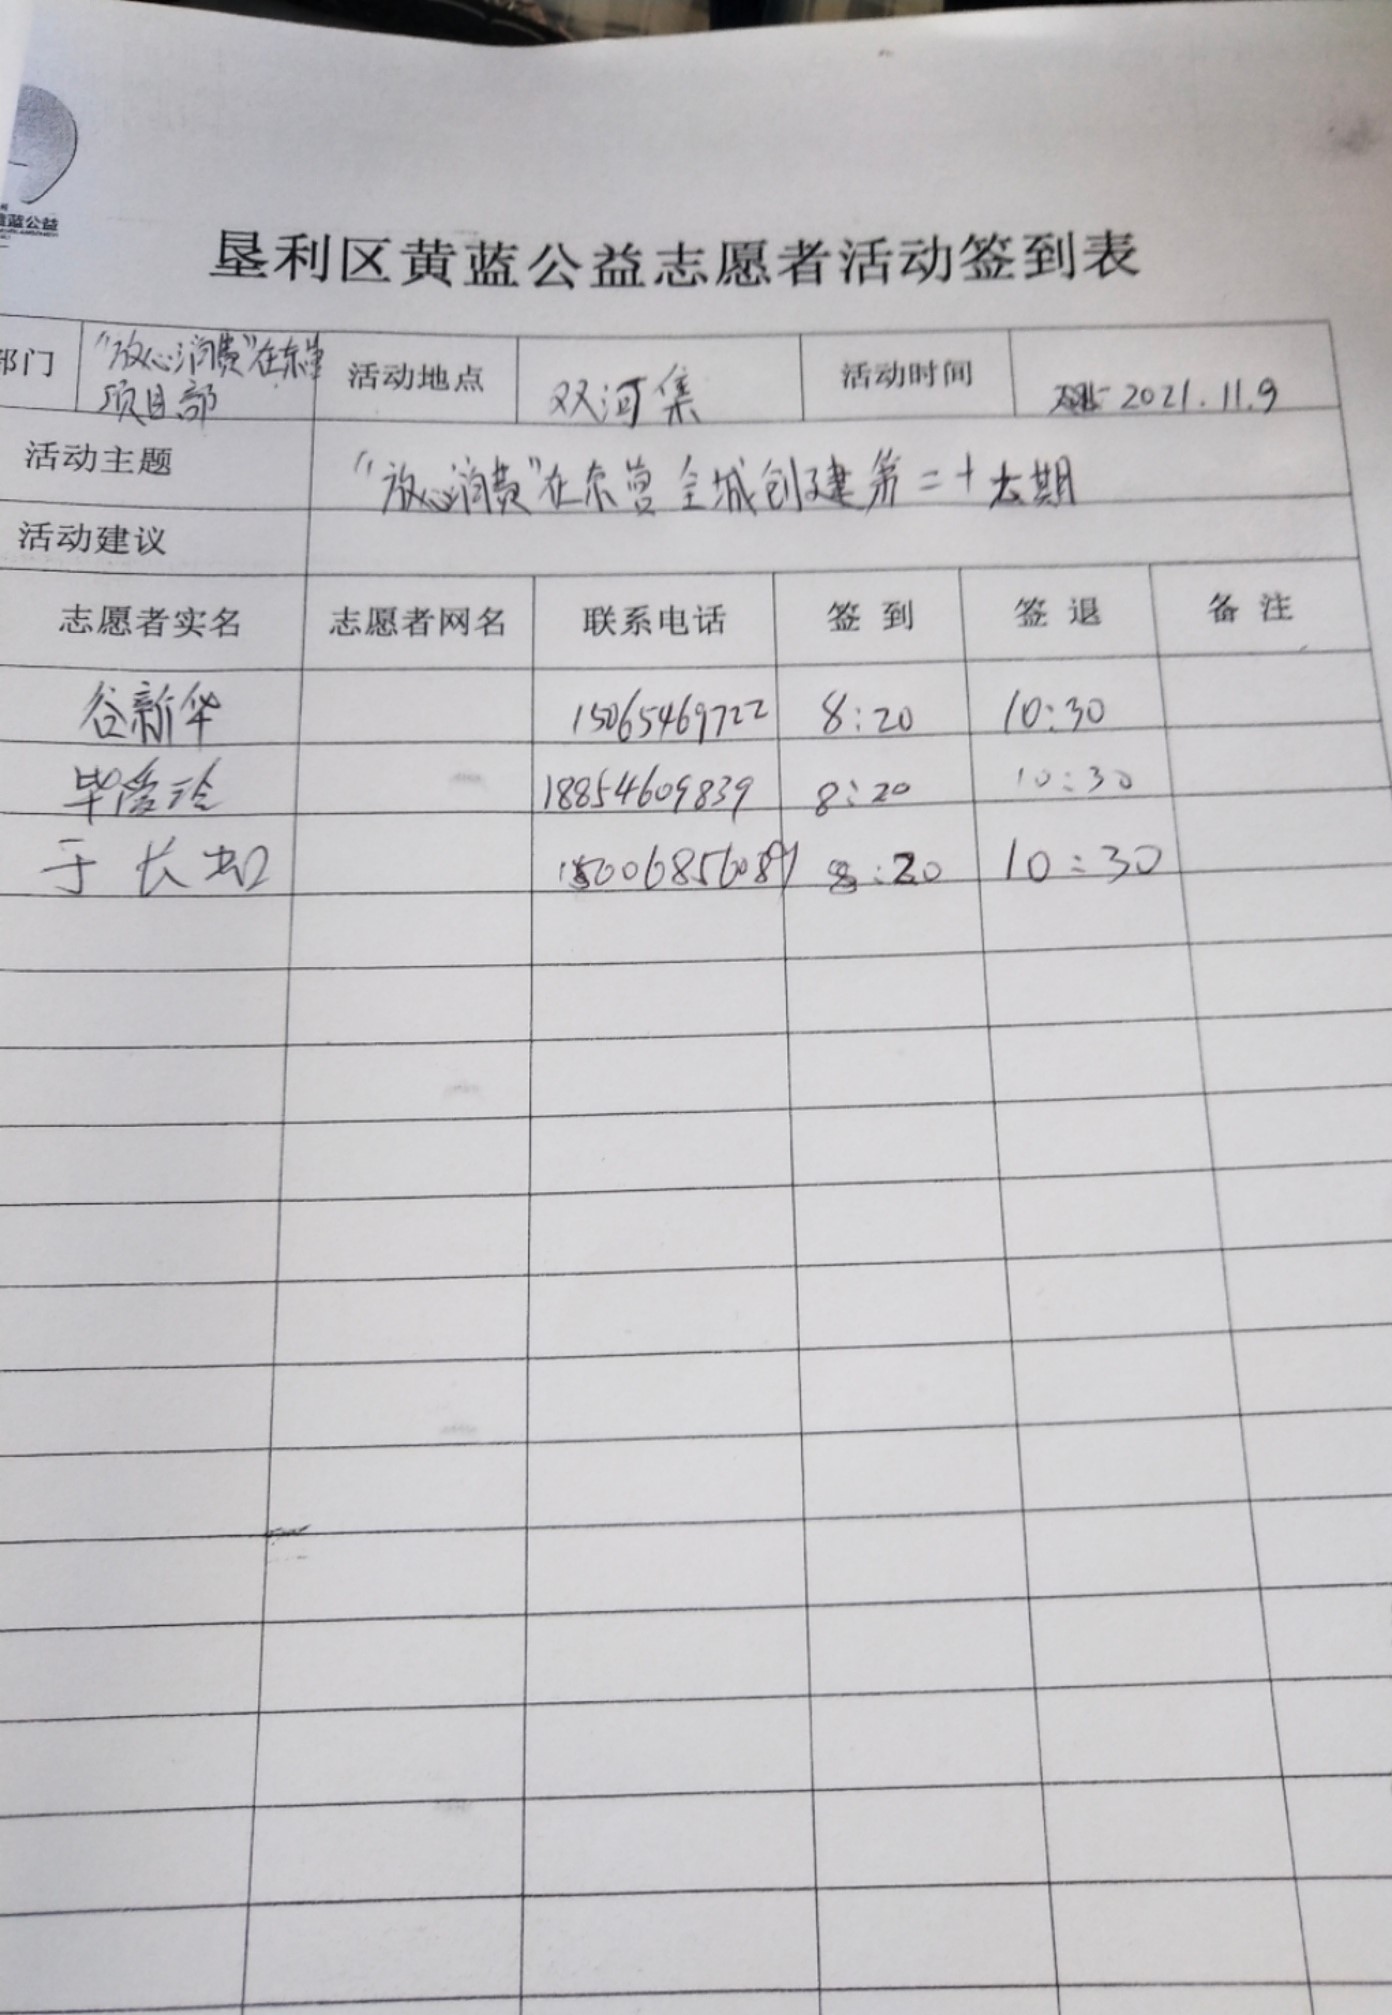 黄蓝公益
垦利区黄蓝公益志愿者活动签到表
部门 "放心消费"在东营项目部 活动地点 双河集 活动时间 2021.11.9
活动主题 "放心消费"在东营全城创建第二十六期
活动建议
志愿者实名 志愿者网名 联系电话 签到 签退 备注
谷新华 15065469722 8:20 10:30
毕爱玲 18854609839 8:20 10:30
于长 8:20 10:30